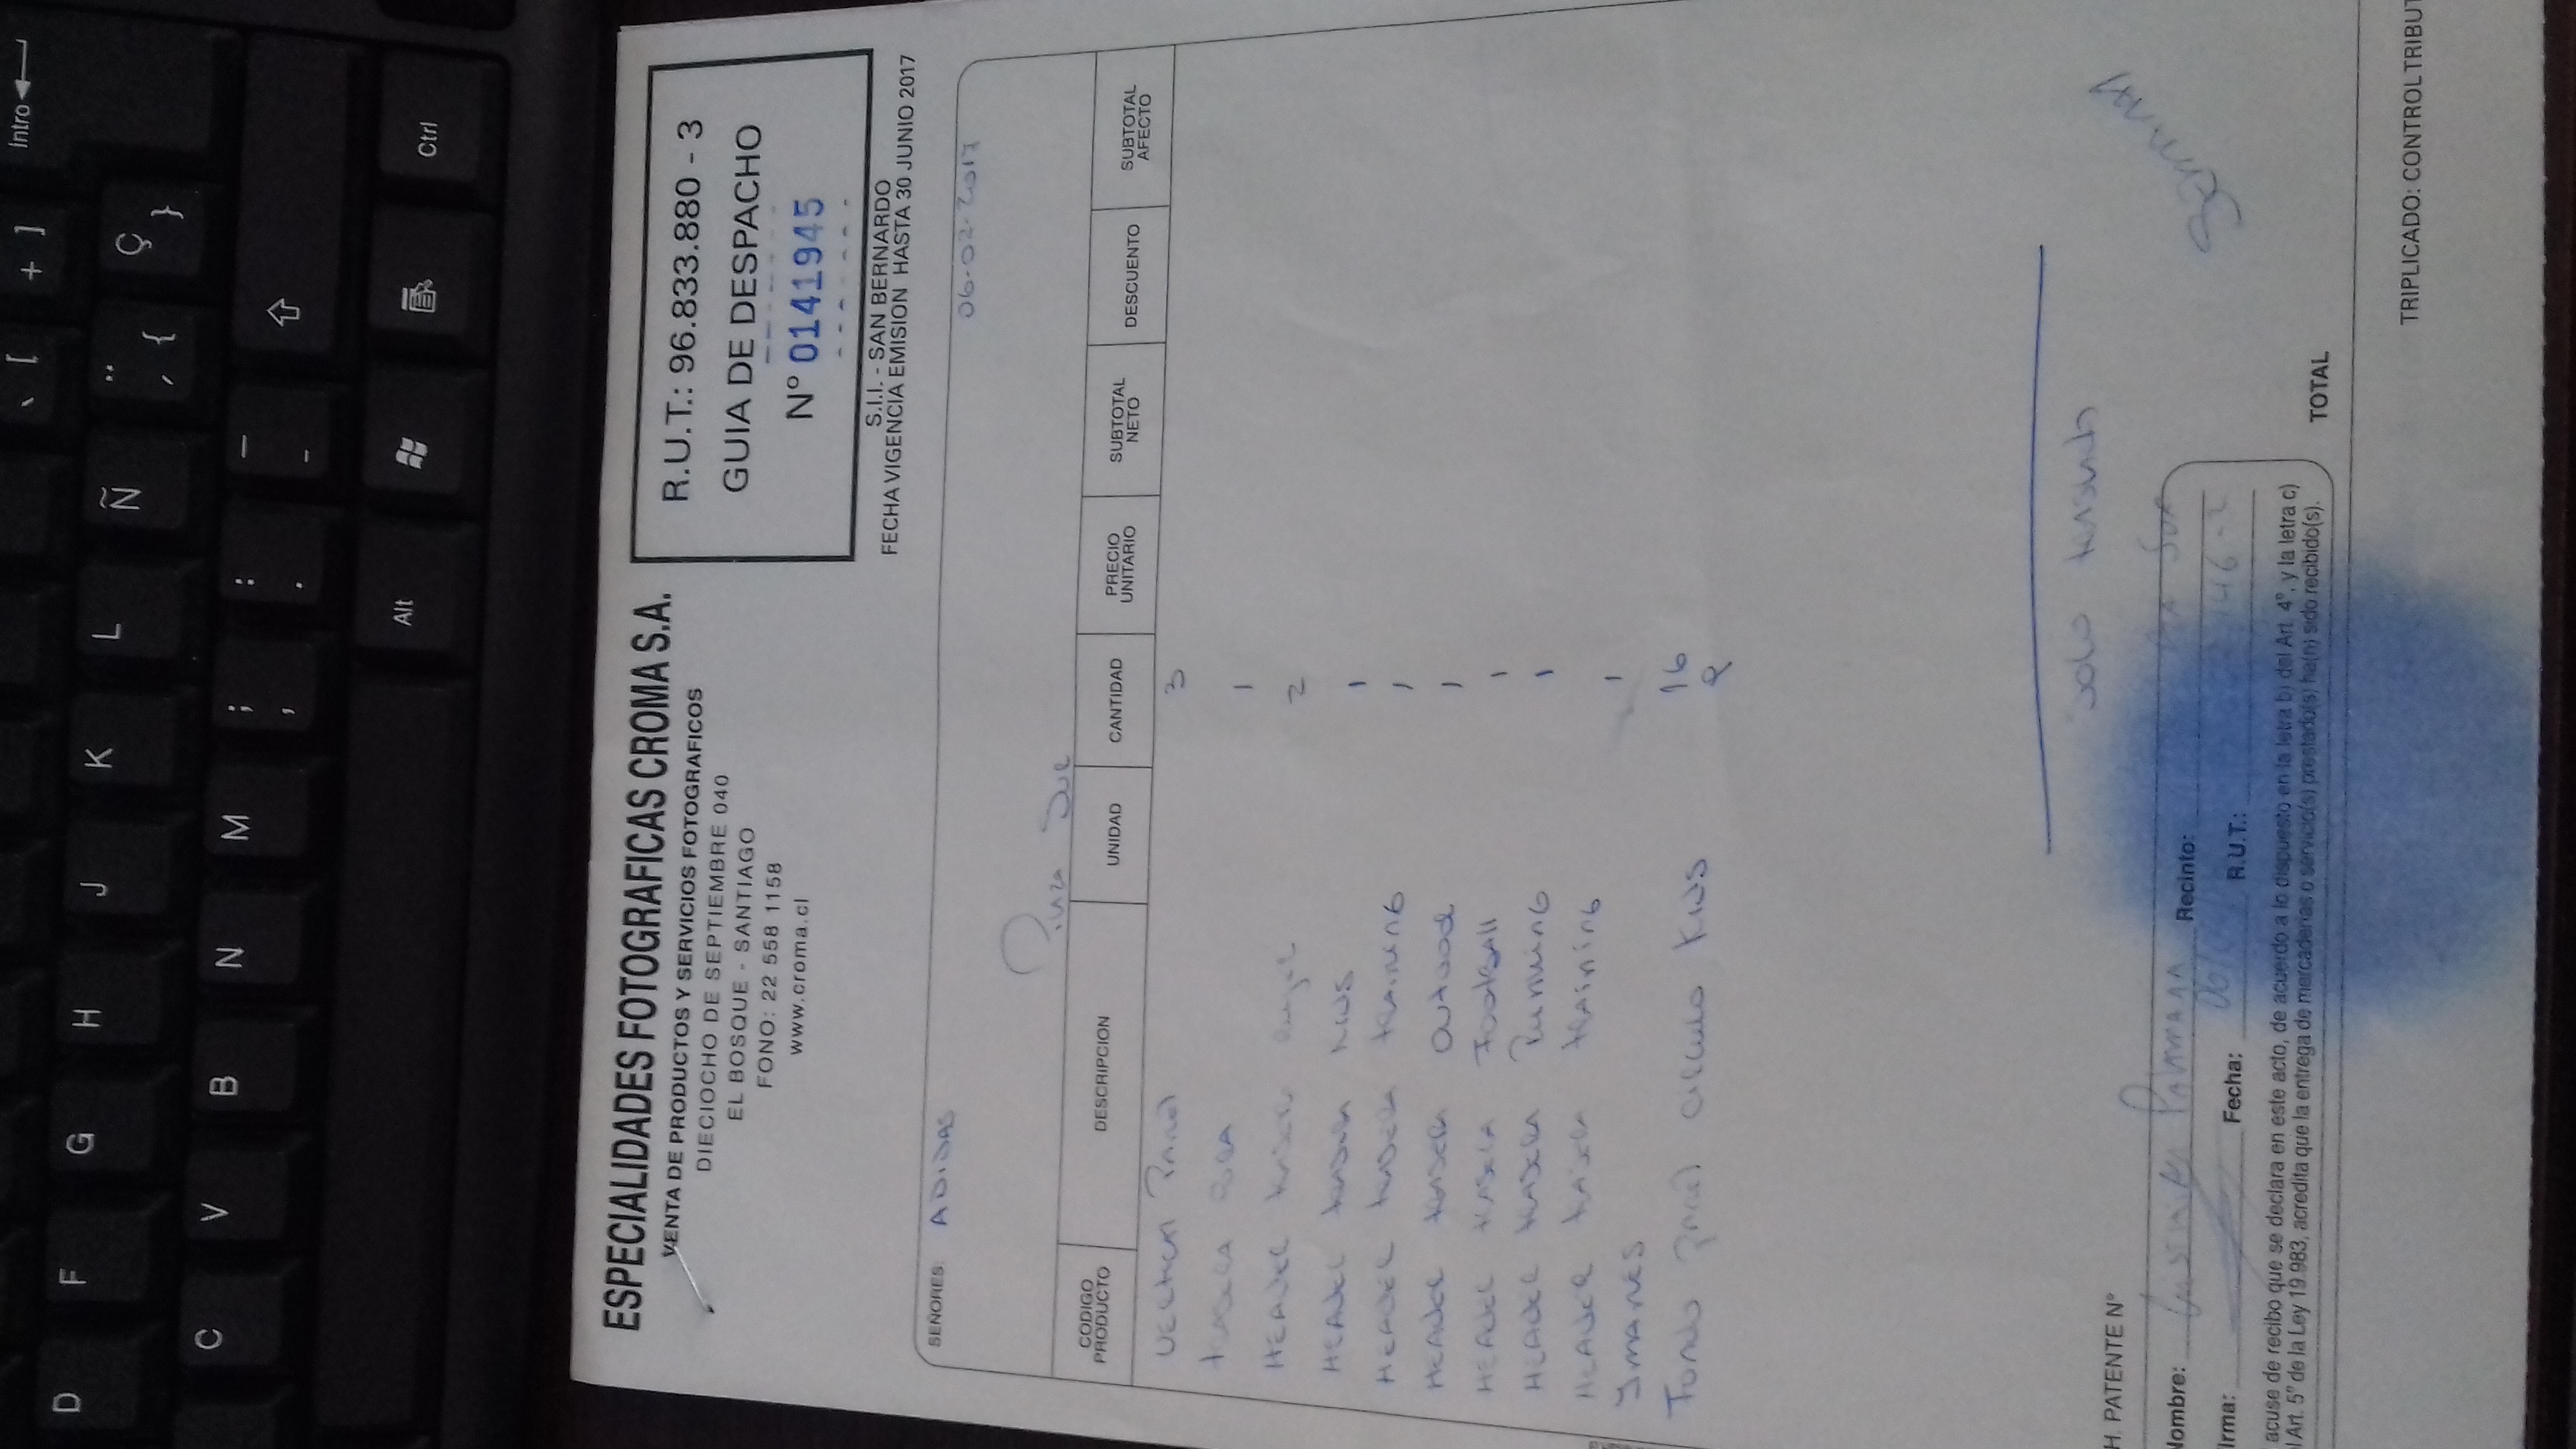 ` [ + ] Intro
D F G H J K L Ñ ¨ ´ { Ç }
C V B N M ; , : . — -
Alt Ctrl
ESPECIALIDADES FOTOGRAFICAS CROMA S.A.
VENTA DE PRODUCTOS Y SERVICIOS FOTOGRAFICOS
DIECIOCHO DE SEPTIEMBRE 040
EL BOSQUE - SANTIAGO
FONO: 22 558 1158
www.croma.cl
R.U.T.: 96.833.880 - 3
GUIA DE DESPACHO
Nº 0141945
S.I.I. - SAN BERNARDO
FECHA VIGENCIA EMISION HASTA 30 JUNIO 2017
SEÑORES: ADIDAS
06-02-2017
Plaza Sur
CODIGO PRODUCTO DESCRIPCION UNIDAD CANTIDAD PRECIO UNITARIO SUBTOTAL NETO DESCUENTO SUBTOTAL AFECTO
VERTICAL Panel 3
TRASERA 1
HEADER TRASERA 2
HEADER TRASERA KIDS 1
HEADER TRASERA TRAINING 1
HEADER TRASERA Outdoor 1
HEADER TRASERA Football 1
HEADER TRASERA Running 1
HEADER TRASERA TRAINING 1
IMANES 16
Fondo panel circulo KIDS
Solo traslado
H. PATENTE Nº
Nombre: Recinto: Sur
Firma: Fecha: R.U.T.: 146-2
acuse de recibo que se declara en este acto, de acuerdo a lo dispuesto en la letra b) del Art. 4º, y la letra c)
l Art. 5º de la Ley 19.983, acredita que la entrega de mercaderias o servicio(s) prestado(s) ha(n) sido recibido(s).
TOTAL
TRIPLICADO: CONTROL TRIBUT